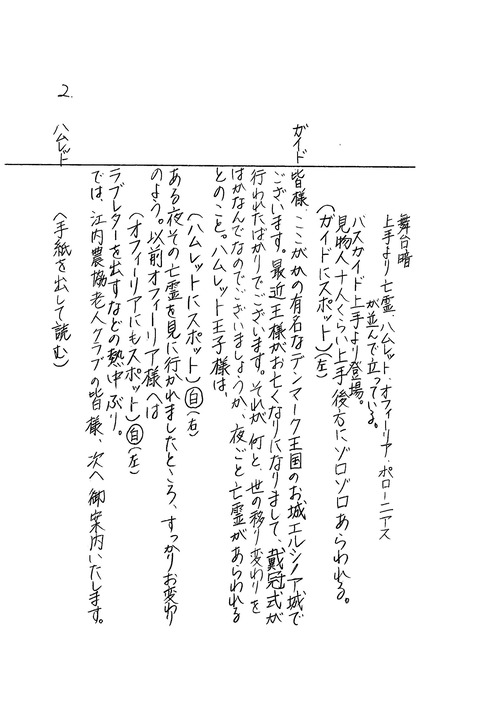 舞台暗
上手より亡霊、ハムレット・オフィーリア・ポローニアス
が並んで立っている。
バスガイド上手より登場。
見物人十人くらい上手後方にゾロゾロあらわれる。
(ガイドにスポット)(左)
ガイド 皆様、ここがかの有名なデンマーク王国のお城エルシノア城で
ございます。最近王様がお亡くなりになりまして、戴冠式が
行われたばかりでございます。それが何と、世の移り変わりを
はかなんでなのでございましょうか、夜ごと亡霊があらわれる
とのこと。ハムレット王子様は、
(ハムレットにスポット)自(右)
ある夜その亡霊を見に行かれましたところ、すっかりお変わり
のよう。以前オフィーリア様へは
(オフィーリアにもスポット)自(左)
ラブレターを出すなどの熱中ぶり。
では、江内農協老人クラブの皆様、次へ御案内いたします。
ハムレット (手紙を出して読む)
2.